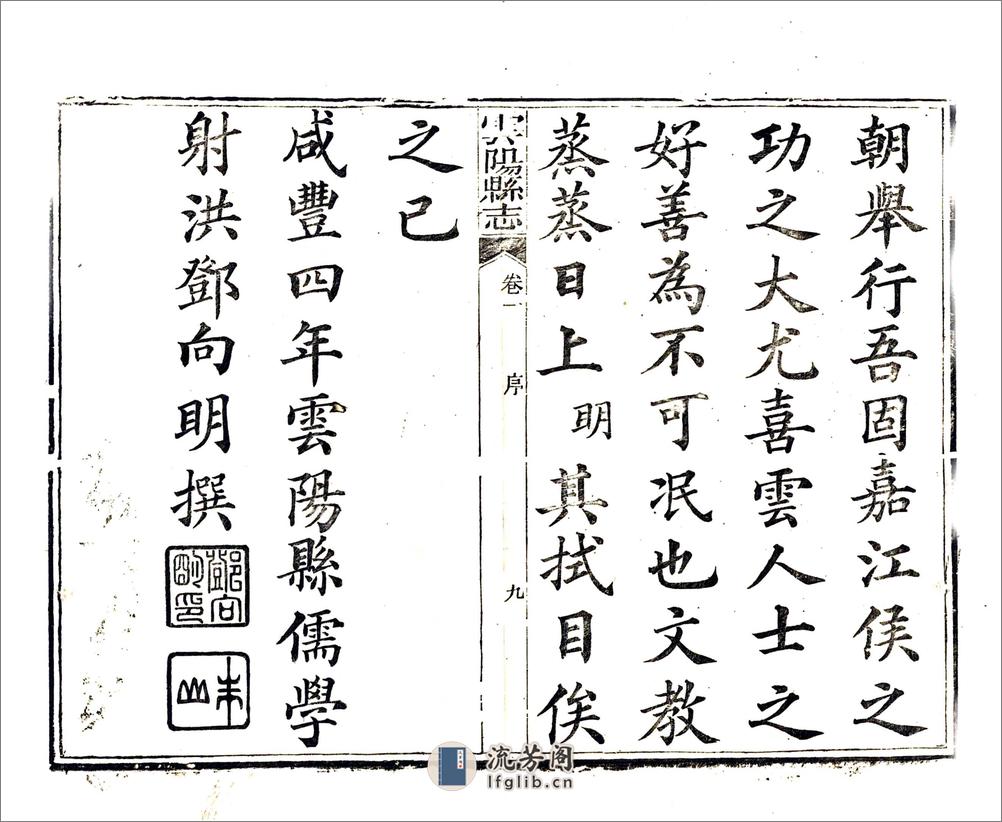 朝舉行吾固嘉江侯之
功之大尤喜雲人士之
好善為不可泯也文教
蒸蒸日上明其拭目俟
雲陽縣志 卷一 序 九
之已
咸豐四年雲陽縣儒學
射洪鄧向明撰
鄧向明印
流芳阁
lfglib.cn